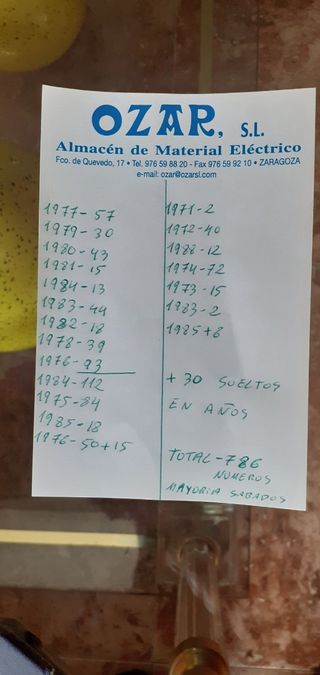 OZAR, S.L.
Almacén de Material Eléctrico
Fco. de Quevedo, 17 • Tel. 976 59 88 20 - Fax 976 59 92 10 • ZARAGOZA
e-mail: ozar@ozarsl.com
1977-57
1979-30
1980-43
1981-15
1984-13
1983-44
1982-18
1978-39
1976-93
1984-112
1975-84
1985-18
1976-50+15
1971-2
1972-40
1988-12
1974-72
1973-15
1983-2
1985+8
+ 30 SUELTOS
EN AÑOS
TOTAL-786
NÚMEROS
MAYORIA SABADOS